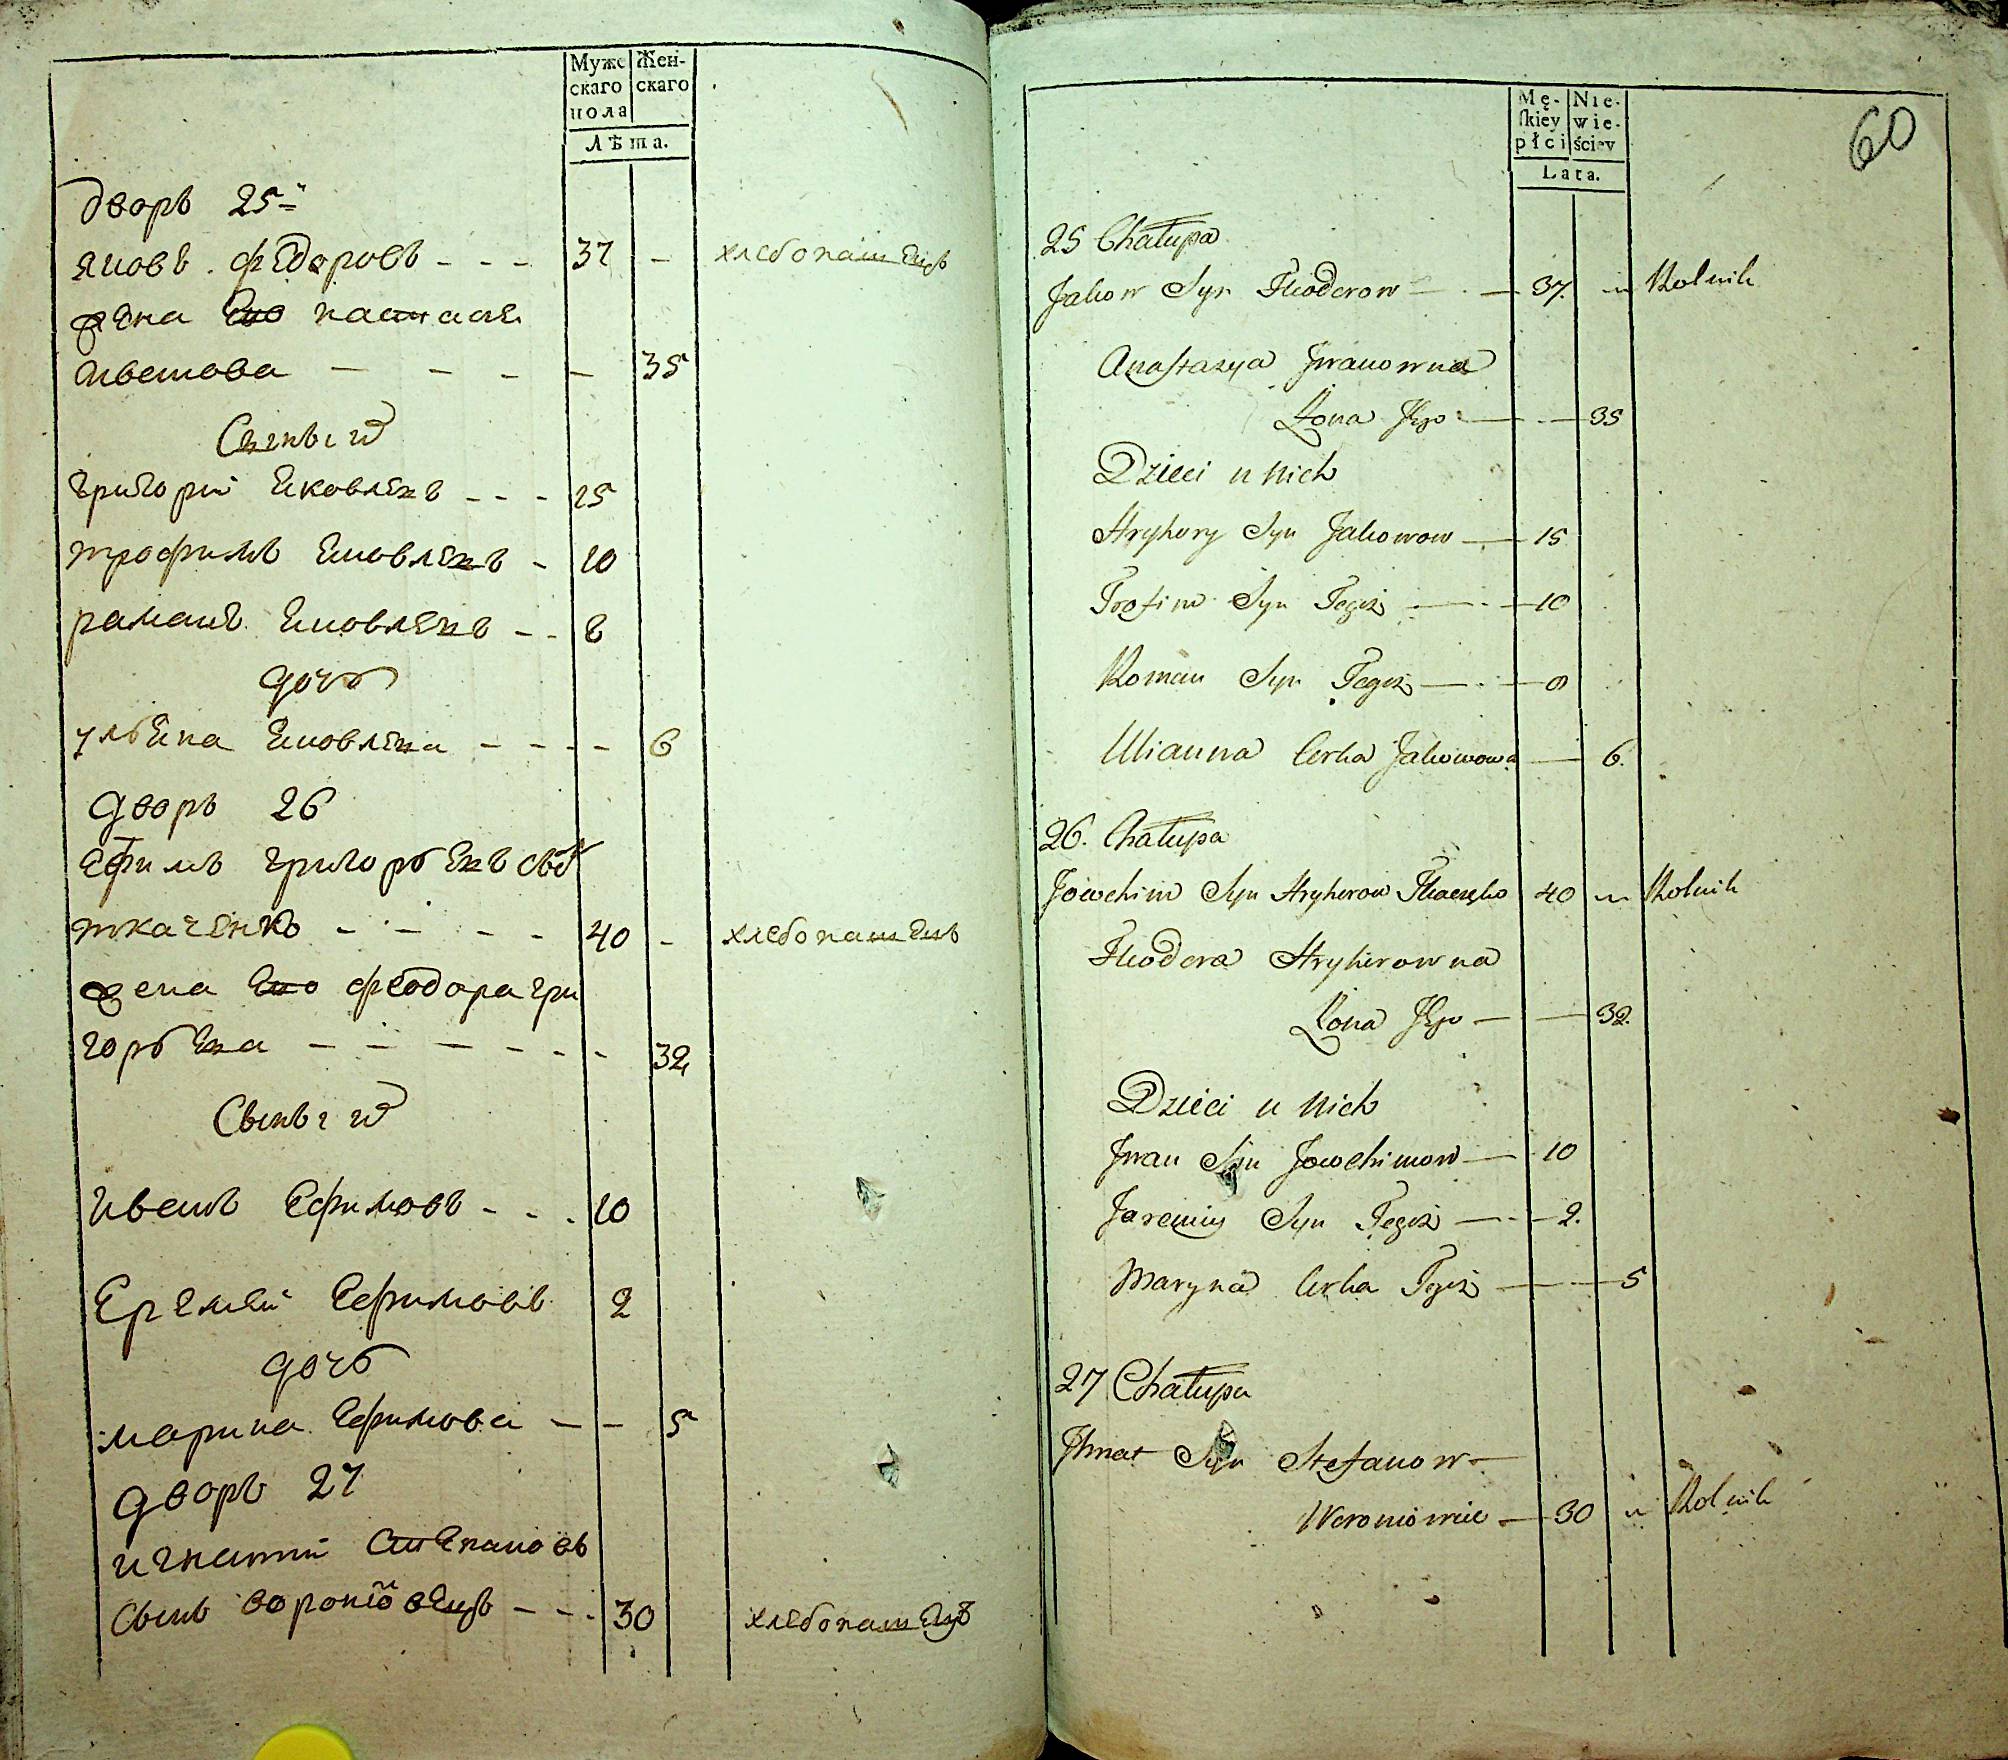 Муже
скаго
пола
Жен-
скаго
Лѣта.
дворъ 25-й
яковъ федоровъ - - - 37 - хлебопашецъ
жена Его настасия
иванова - - - - - 35
Сыны их
григорий Яковленъ - - - 15
трофимъ Яковленъ - 10
раманъ Яковленъ - - 8
дочь
ульяна Яковлена - - - - 6
дворъ 26
Ефимъ григорьевъ
ткаченко - - - - 40 - хлебопашецъ
жена Его феодора гри
горьева - - - - - - 32
Сыны их
иванъ Ефимовъ - - - 10
Еремей Ефимовъ 2
дочь
марина Ефимова - - 5
дворъ 27
игнатий Степановъ
сынъ воронiовецъ - - - 30 хлебопашецъ
60
Mę-
ſkiey
płci
Nie-
wie-
ściey
Lata.
25 Chałupa
Jakow Syn Theodorow - - 37. „ Rolnik
Anastazya Jwanowna
Żona Jego - - 35
Dzieci u Nich
Hryhory Syn Jakowow - 15
Trofim Syn Tegoż - - 10
Roman Syn Tegoż - - 8
Ulianna Corka Jakowowa - 6.
26. Chałupa
Jowchim Syn Hryhorow Tkaczęko 40 „ Rolnik
Theodora Hryhorowna
Żona Jego - - 32.
Dzieci u Nich
Jwan Syn Jowchimow - 10
Jaremiy Syn Tegoż - - 2.
Maryna Corka Tegoż - - 5
27 Chałupa
Jhnat Syn Stefanow -
- 30 „ Rolnik